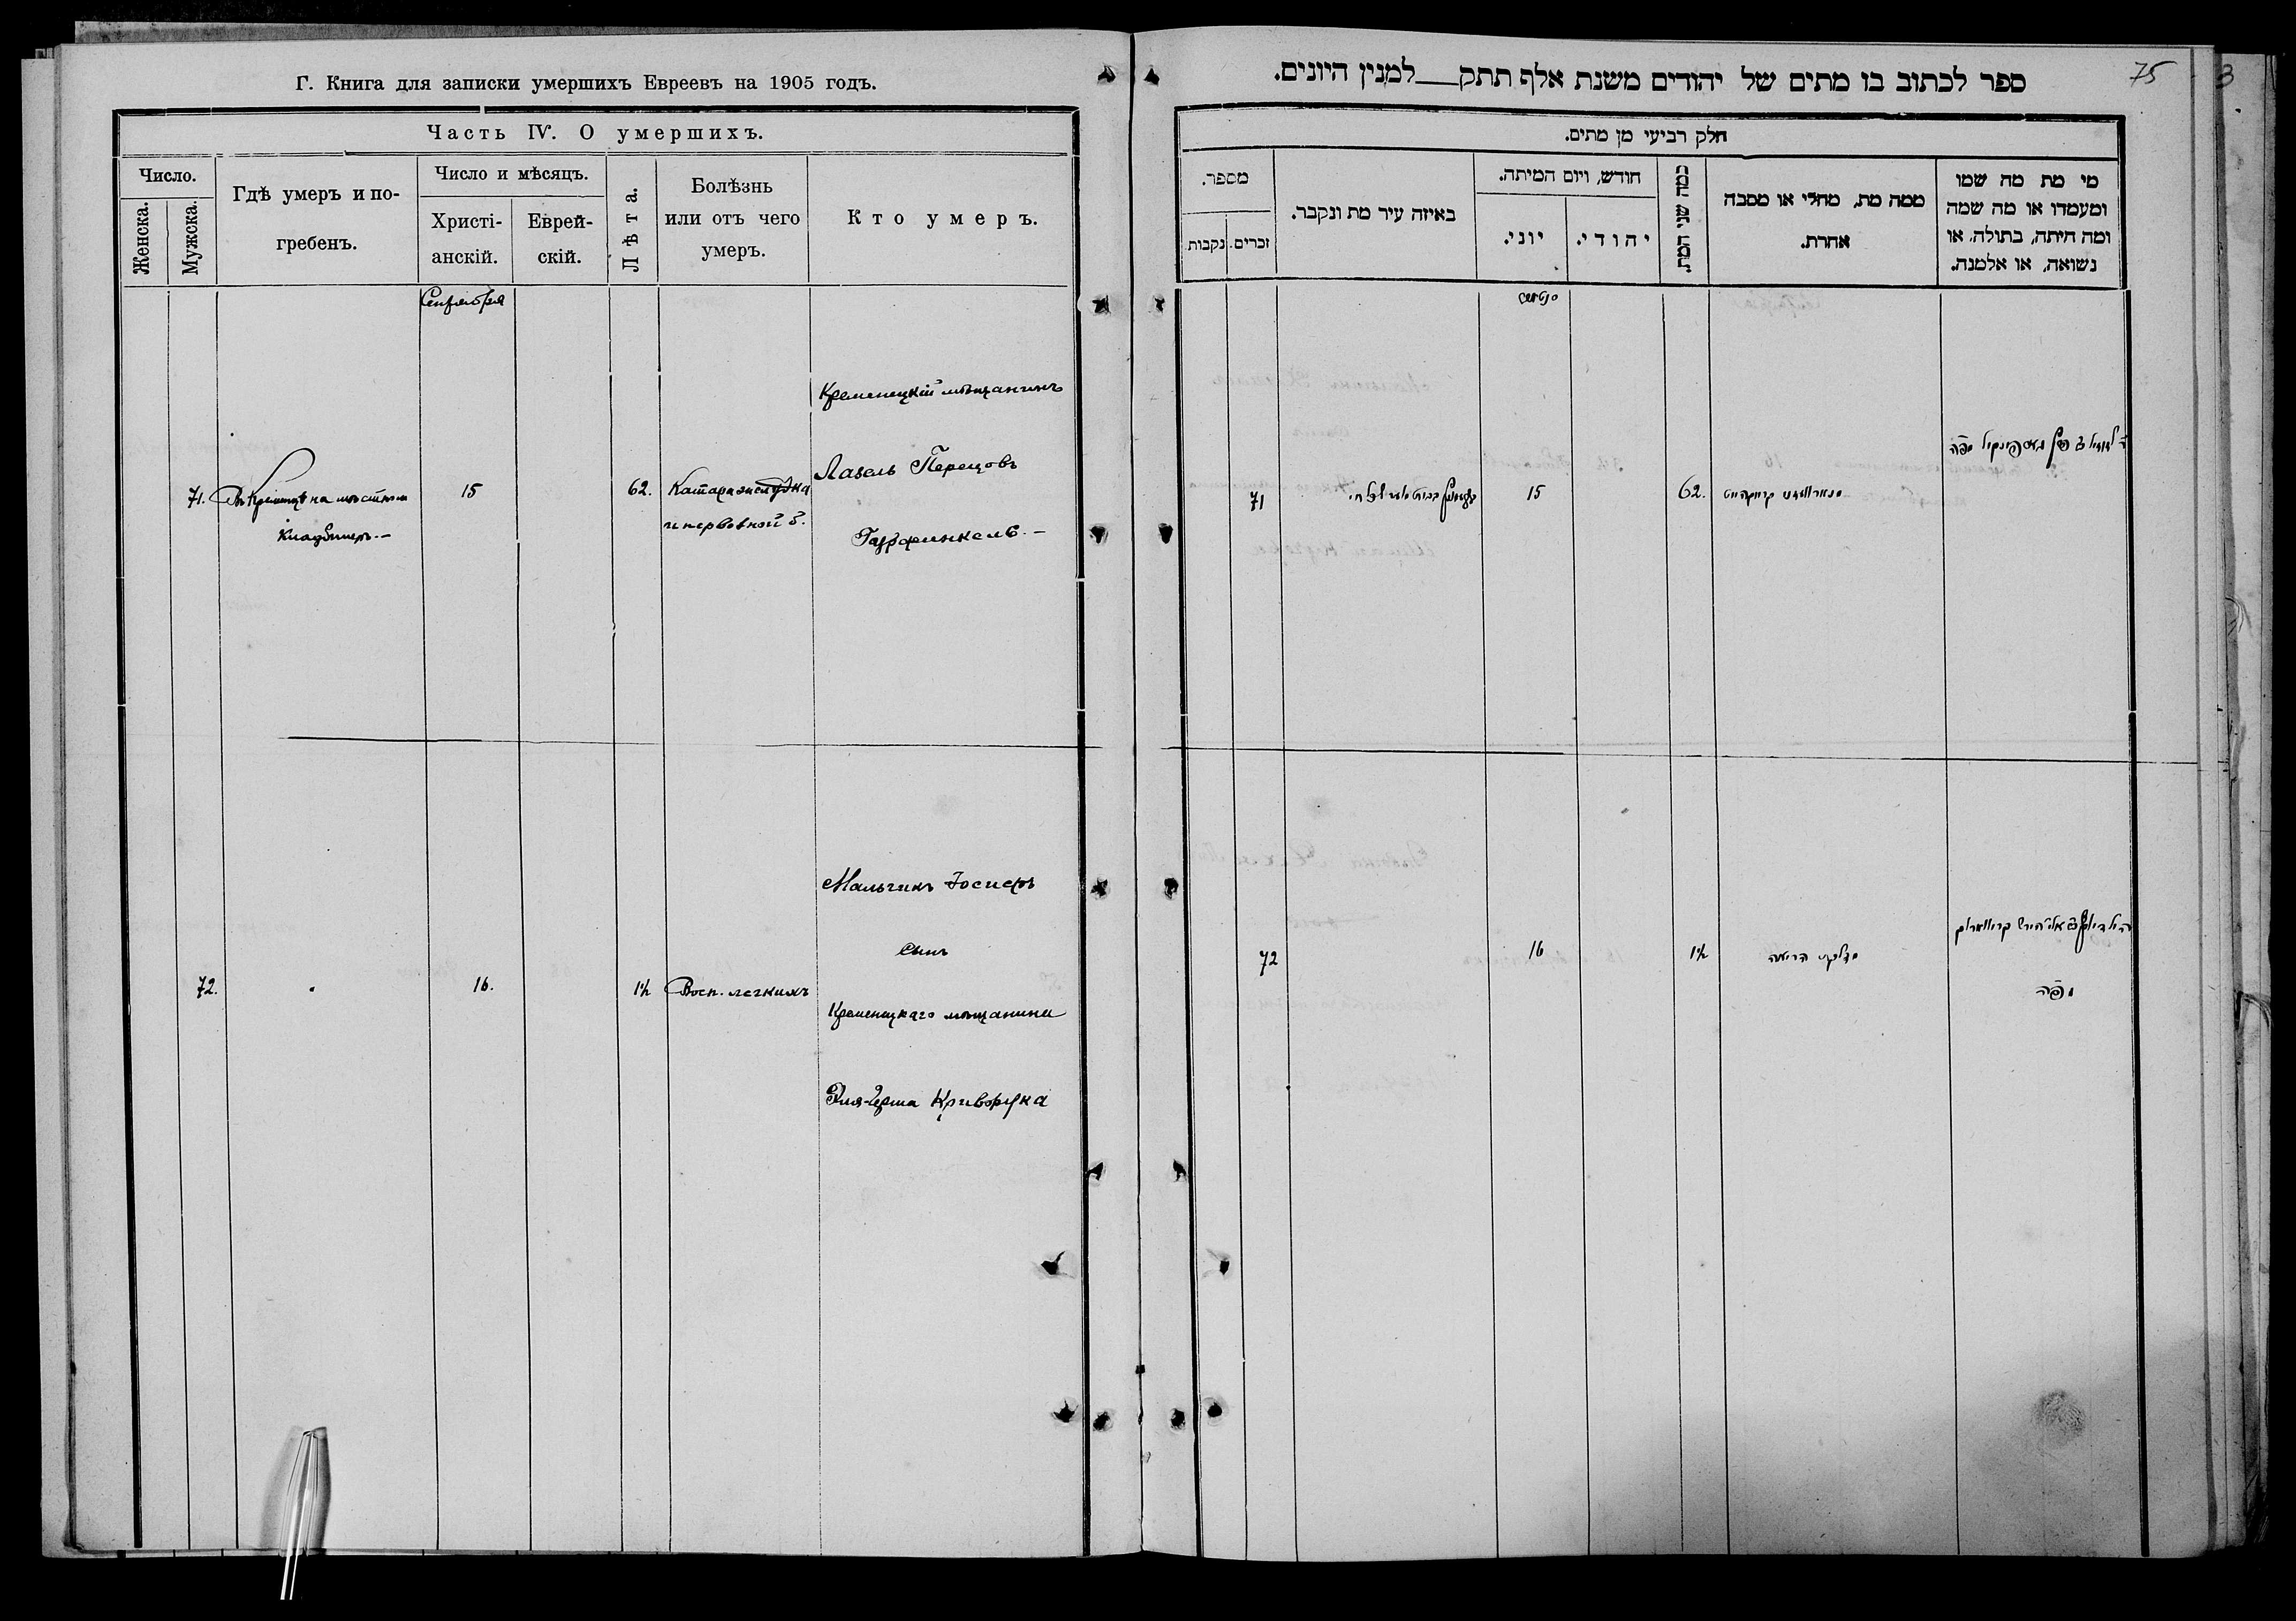 Г. Книга для записки умершихъ Евреевъ на 1905 годъ.
Часть IV. О умершихъ.
Число.
Женска.
Мужска.
Гдѣ умеръ и по-
гребенъ.
Число и мѣсяцъ.
Христі-
анскій.
Еврей-
скій.
Лѣта.
Болѣзнь
или отъ чего
умеръ.
Кто умеръ.
Сентября
71.
Въ Кременцѣ на мѣстномъ
кладбищѣ.-
15
62.
Катара желудка
и нервовной б.
Кременецкій мѣщанинъ
Лазель Перецовъ
Гурфинкель.-
72.
16.
1½
Восп. легкихъ
Мальчикъ Іосифъ
сынъ
Кременецкаго мѣщанина
Эля-Герша Криворука
75
3
ספר לכתוב בו מתים של יהודים משנת אלף תתק למנין היונים.
חלק רביעי מן מתים.
מספר.
זכרים.
נקבות
באיזה עיר מת ונקבר.
חודש, ויום המיתה.
יוני.
יהודי.
כמה שני המת.
ממה מת, מחלי או מסבה
אחרת.
מי מת מה שמו
ומעמדו או מה שמה
ומה היתה, בתולה, או
נשואה, או אלמנה.
71
15
62.
72
16
1½